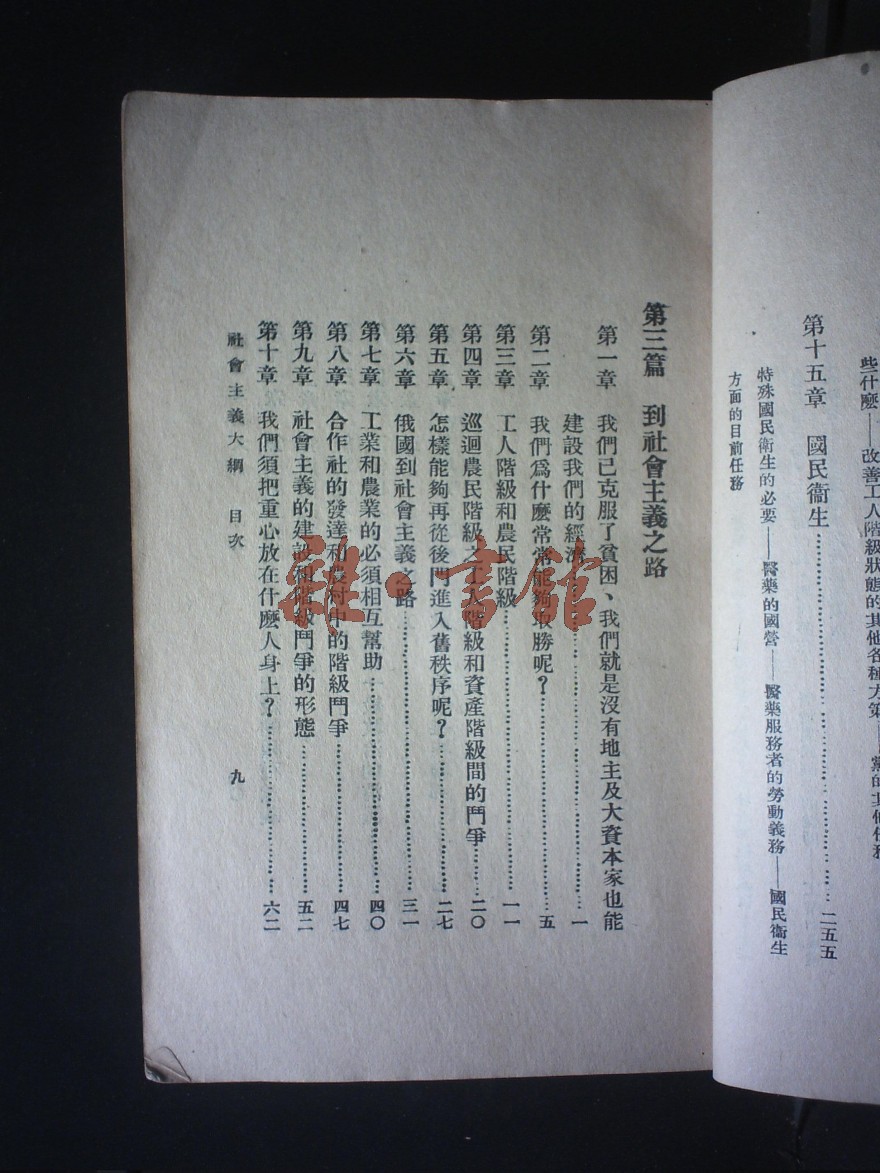 些什麼——改善工人階級狀態的其他各種方策——黨的其他任務
第十五章　國民衞生……二五五
特殊國民衞生的必要——醫藥的國營——醫藥服務者的勞動義務——國民衞生
方面的目前任務
第三篇　到社會主義之路
第一章　我們已克服了貧困、我們就是沒有地主及大資本家也能
建設我們的經濟……一
第二章　我們爲什麼常常能夠取勝呢？……五
第三章　工人階級和農民階級……一一
第四章　巡迴農民階級之工人階級和資產階級間的鬥爭……二〇
第五章　怎樣能夠再從後門進入舊秩序呢？……二七
第六章　俄國到社會主義之路……三一
第七章　工業和農業的必須相互幫助……四〇
第八章　合作社的發達和農村中的階級鬥爭……四七
第九章　社會主義的建設和階級鬥爭的形態……五二
第十章　我們須把重心放在什麼人身上？……六二
社會主義大綱　目次
九
雜·書館